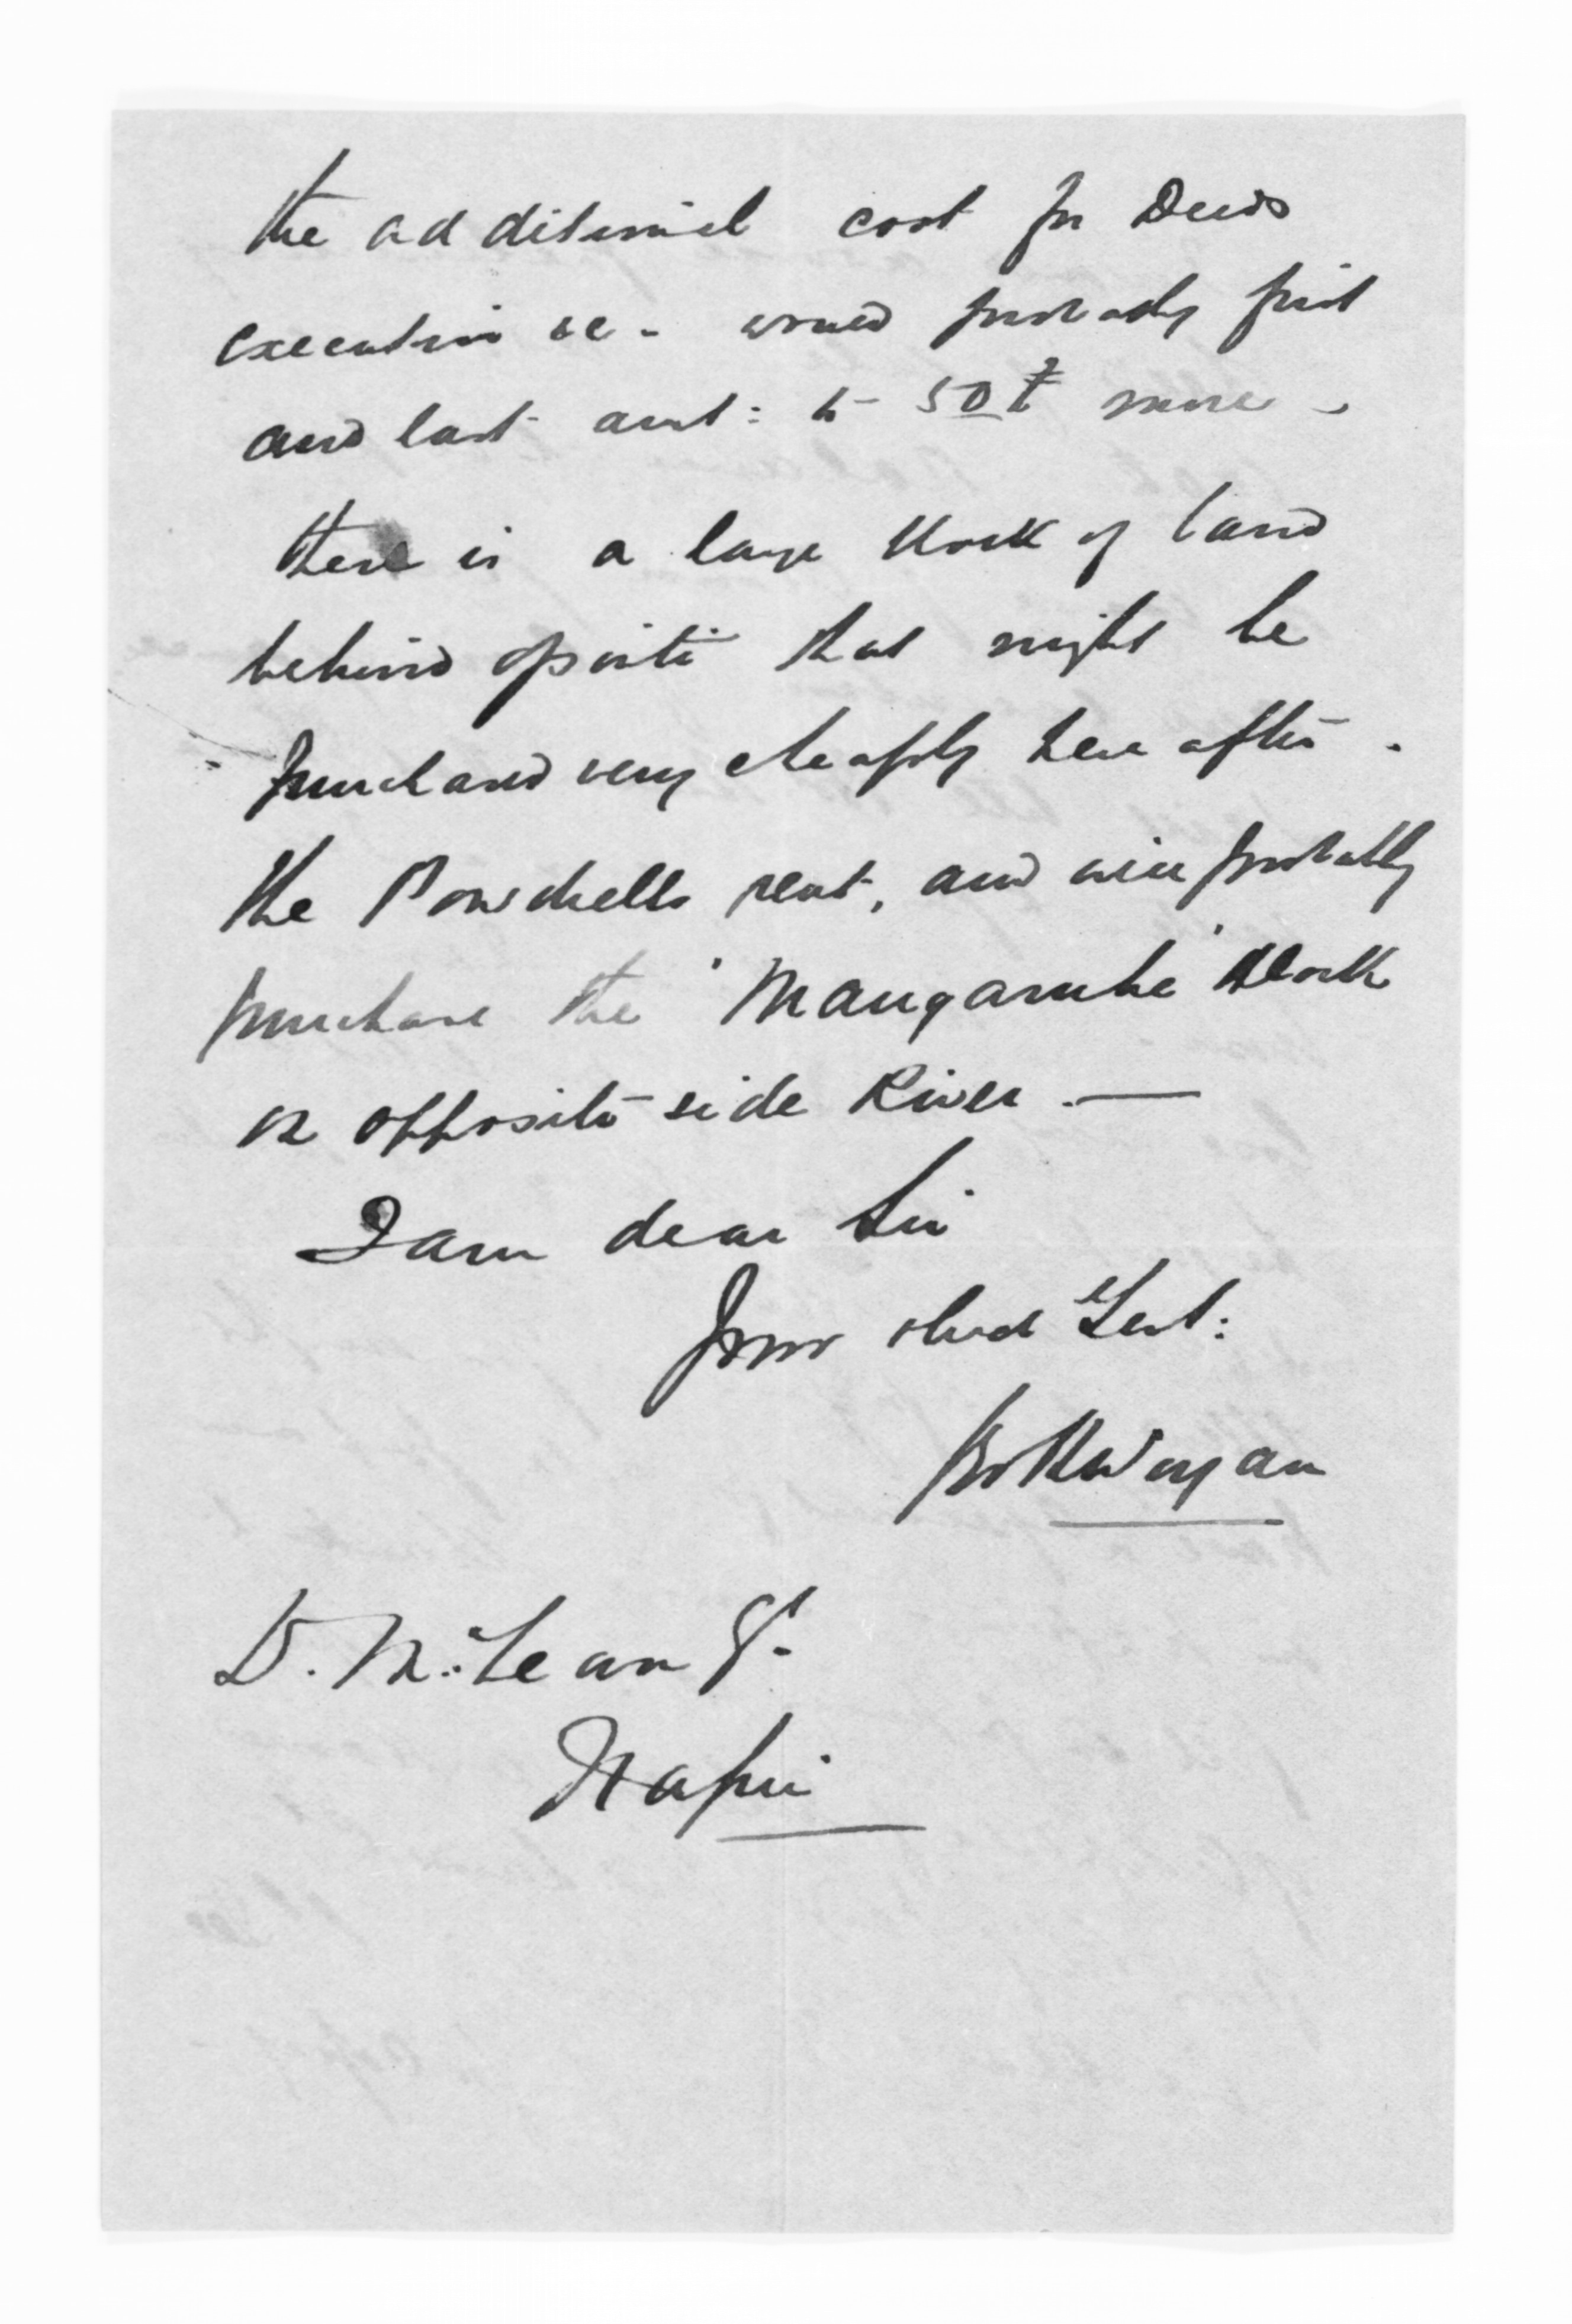 the additional cost for Deeds
execution &c - would probably first
and last amt: to 50£ more -
there is a large block of land
behind opposite that might be
purchased very cheaply here after.
the Powdrells rent, and will probably
purchase the "Mangaruhe" Block
on opposite side River. —
I am dear Sir
Your obed Servt:
D. McLean
Napier